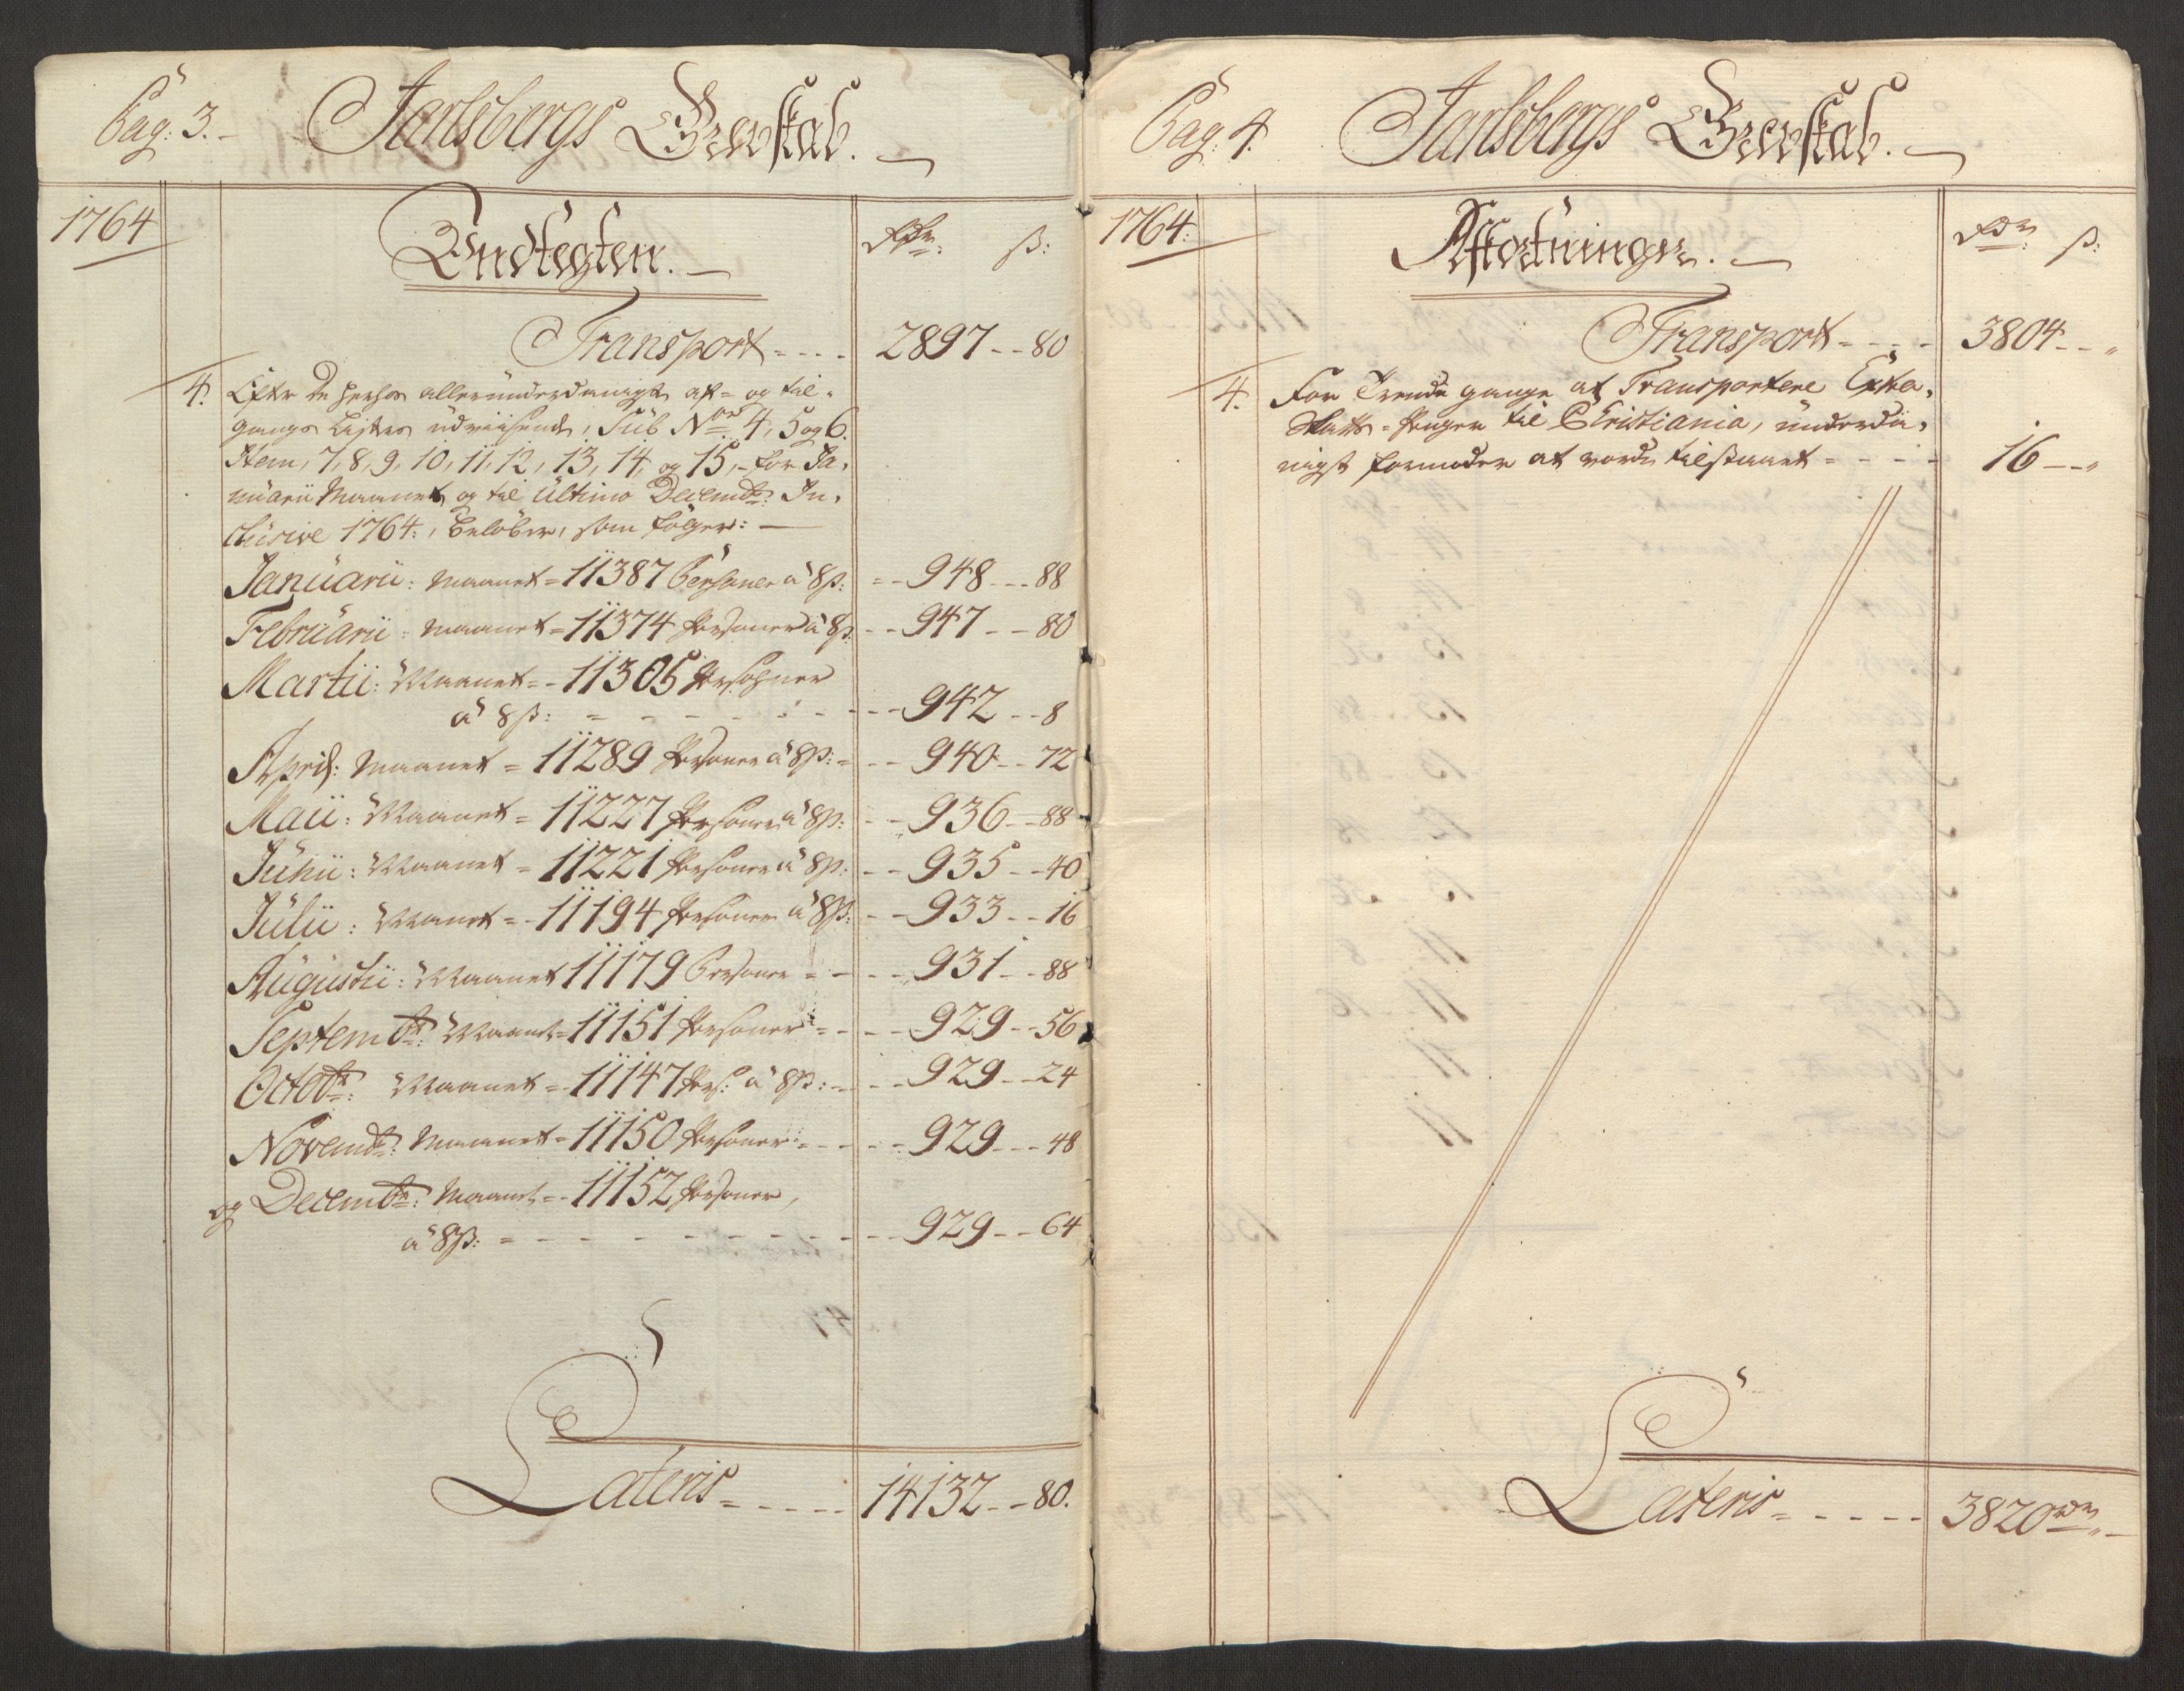 Pag: 3.
Jarlsbergs Grevskab.
1764
Indtegten.
Rdr: ß:
Transport - - - - 2897 - - 80
4. Efter de herhos allerunderdanigst af- og til-
gangs Lister udviisende, Sub Nos 4, 5 og 6.
Item, 7, 8, 9, 10, 11, 12, 13, 14, og 15, for Ja-
nuarii Maanet og til Ultimo Decembr: In-
clusive 1764, Beløber, som følger:
Januarii: Maanet = 11387 Personer a 8 ß: - - 948 - - 88
Februarii: Maanet = 11374 Personer a 8 ß - - 947 - - 80
Martii: Maanet = 11305 Personer
a 8 ß: - - - - - - 942 - - 8
April: Maanet = 11289 Personer a 8 ß: - - 940 - - 72
Maii: Maanet = 11227 Personer a 8 ß: - - 936 - - 88
Junii: Maanet = 11221 Personer a 8 ß: - - 935 - - 40
Julii: Maanet = 11194 Personer a 8 ß: - - 933 - - 16
Augustii: Maanet 11179 Personer - - - 931 - - 88
Septembr: Maanet = 11151 Personer - - - 929 - - 56
Octobr: Maanet = 11147 Pers: a 8 ß: - - - 929 - - 24
Novembr: Maanet = 11150 Personer - - - 929 - - 48
og Decembr: Maanet = 11152 Personer,
a 8 ß: - - - - - - - - 929 - - 64
Lateris - - - - 14132 - - 80.
Pag: 4.
Jarlsbergs Grevskab.
1764:
Afkortninger.
Rdr: ß:
Transport - - - - 3804 - - „
4. For Trende gange at Transportere Extra-
Skatte-Penger til Christiania, underda-
nigst formoder at vorde tilstaaet - - - - 16 - - „
Lateris - - - - - 3820 rdr „